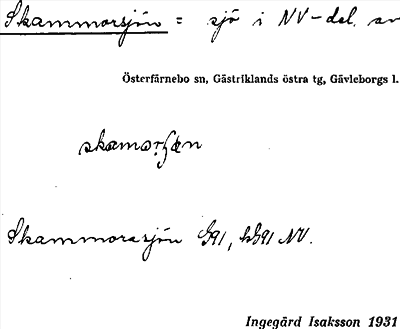 Skammorsjön = sjö i NV-del. av
Österfärnebo sn, Gästriklands östra tg, Gävleborgs l.
Skammorasjön G91, hG91 NV.
Ingegärd Isaksson 1931